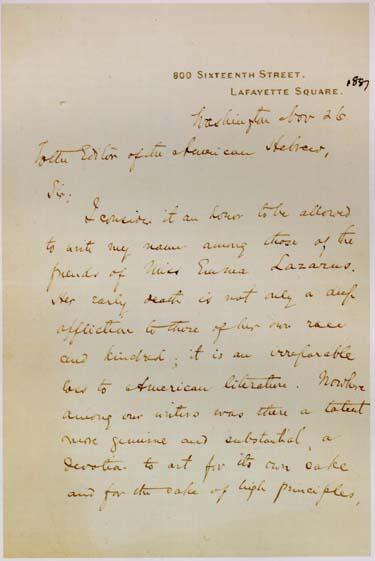 800 SIXTEENTH STREET.
LAFAYETTE SQUARE. 1887
Washington Nov 26
To the Editor of the American Hebrew,
Sir;
I consider it an honor to be allowed
to write my name among those of the
friends of Miss Emma Lazarus.
Her early death is not only a deep
affliction to those of her own race
and kindred; it is an irreparable
loss to American literature. Nowhere
among our writers was there a talent
more genuine and substantial, a
devotion to art for its own sake
and for the sake of high principles,